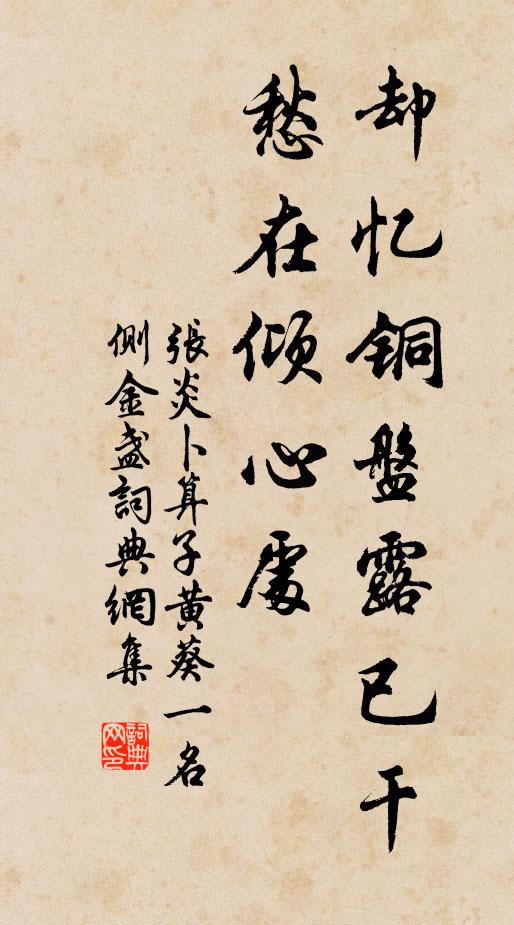 却忆銅盤露已干
愁在倾心處
張炎卜算子黄葵一名
側金盞詞典網集
詞典网印